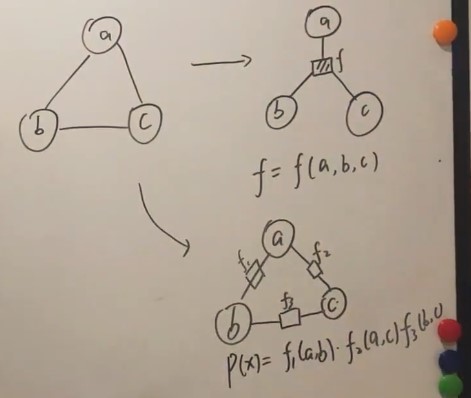 a
b c
a
f
b c
f = f(a,b,c)
a
f₁ f₂
f₃
b c
P(x) = f₁(a,b) · f₂(a,c) f₃(b,c)